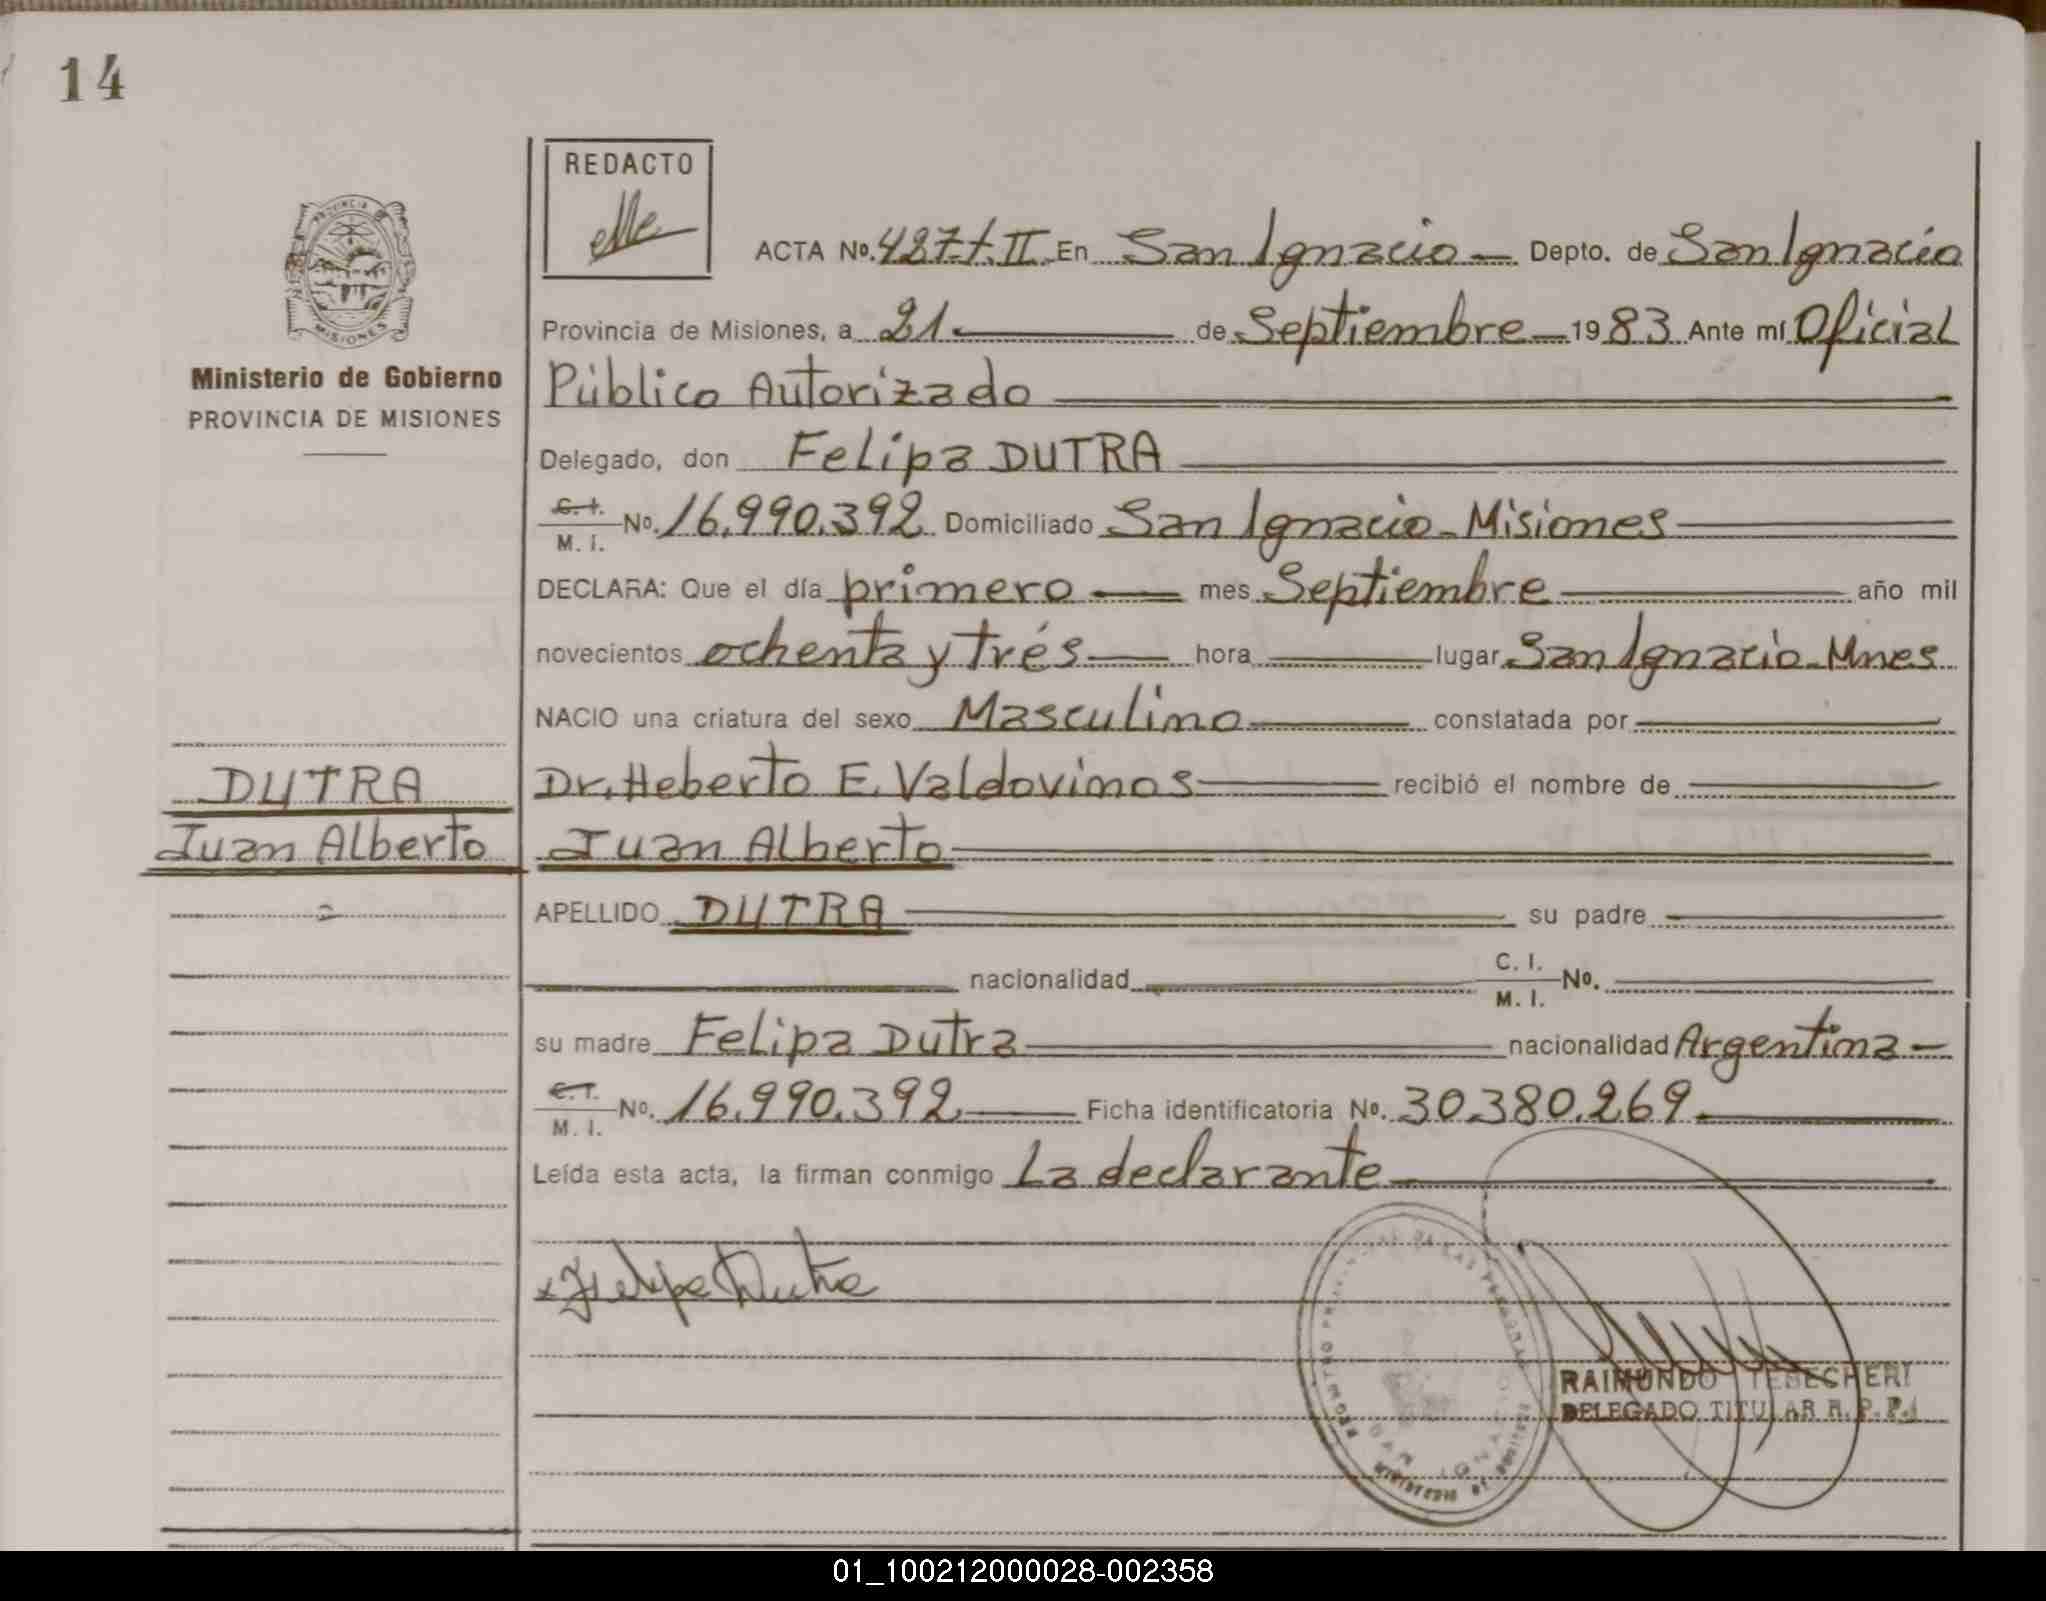 14
REDACTO
PROVINCIA DE
MISIONES
Ministerio de Gobierno
PROVINCIA DE MISIONES
ACTA No. 487 T. II En San Ignacio Depto. de San Ignacio
Provincia de Misiones, a 21 de Septiembre 1983 Ante mí Oficial
Público Autorizado
Delegado, don Felipa DUTRA
C. I.
M. I. No. 16.990.392 Domiciliado San Ignacio - Misiones
DECLARA: Que el día primero mes Septiembre año mil
novecientos ochenta y trés hora lugar San Ignacio - Mnes
NACIO una criatura del sexo Masculino constatada por
DUTRA
Juan Alberto
Dr. Heberto E. Valdovinos recibió el nombre de
Juan Alberto
APELLIDO DUTRA su padre
nacionalidad C. I.
M. I. No.
su madre Felipa Dutra nacionalidad Argentina
C. I.
M. I. No. 16.990.392 Ficha identificatoria No. 30.380.269
Leída esta acta, la firman conmigo La declarante
x Felipa Dutra
REGISTRO PROVINCIAL DE LAS PERSONAS
SAN IGNACIO
RAIMUNDO TEBECHERI
DELEGADO TITULAR R. P. P.
01_100212000028-002358